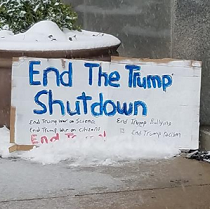 End The Trump
Shutdown
End Trump War on Science
End Trump Bullying
End Trump War on Citizens!
End Trump Racism
END